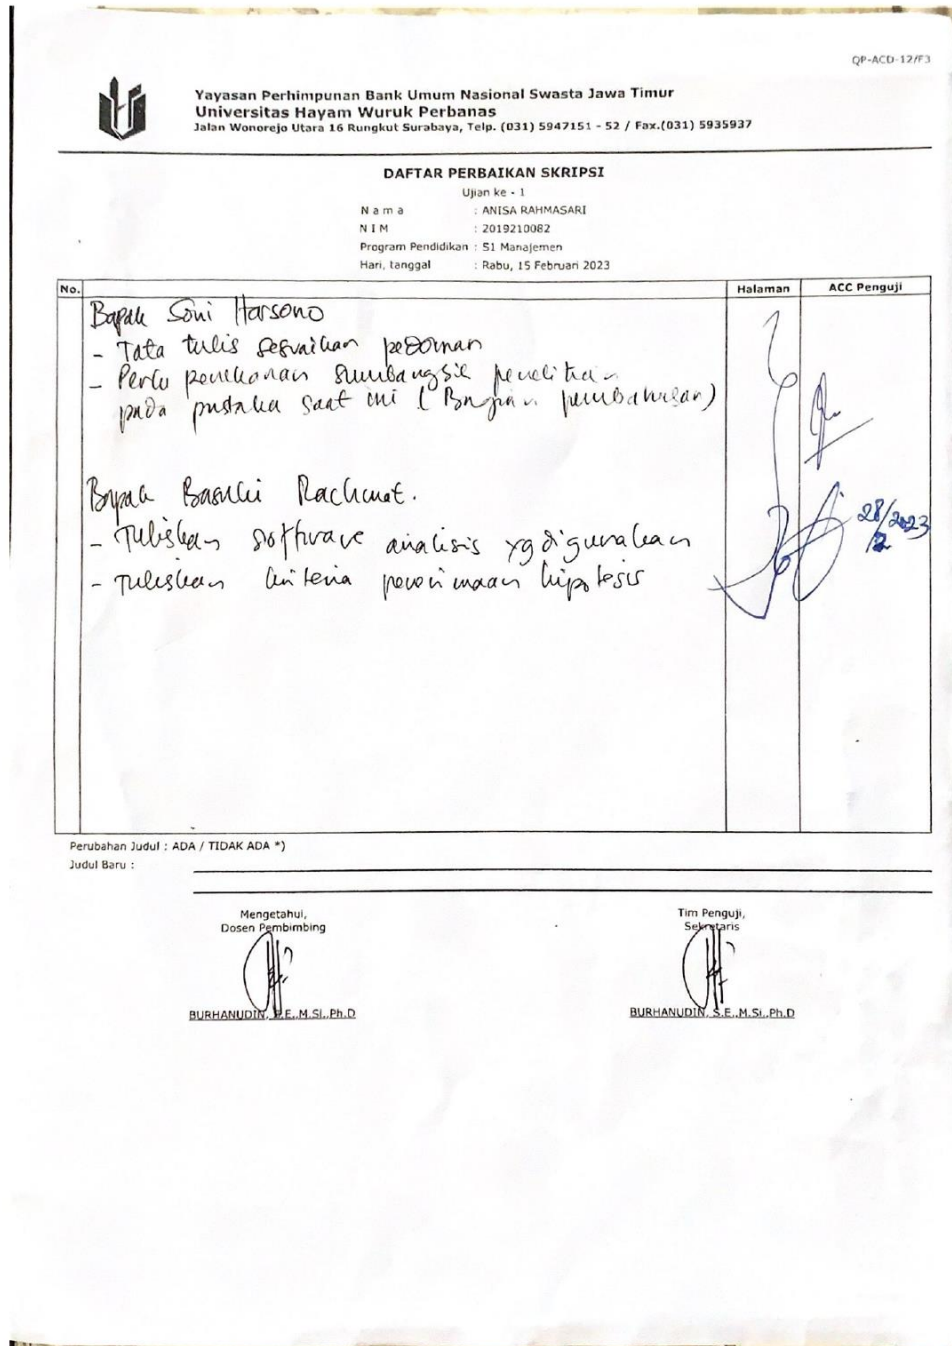 QP-ACD-12/F3
Yayasan Perhimpunan Bank Umum Nasional Swasta Jawa Timur
Universitas Hayam Wuruk Perbanas
Jalan Wonorejo Utara 16 Rungkut Surabaya, Telp. (031) 5947151 - 52 / Fax.(031) 5935937
DAFTAR PERBAIKAN SKRIPSI
Ujian ke - 1
N a m a : ANISA RAHMASARI
N I M : 2019210082
Program Pendidikan : S1 Manajemen
Hari, tanggal : Rabu, 15 Februari 2023
No. Halaman ACC Penguji
Bapak Soni Harsono
- Tata tulis sesuaikan pedoman
- Perlu penekanan sumbangsih penelitian
pada pustaka saat ini (Bagian pembahasan)
Bapak Basuki Rachmat.
- Tuliskan software analisis yg digunakan
- Tuliskan kriteria penerimaan hipotesis
28/2 2023
Perubahan Judul : ADA / TIDAK ADA *)
Judul Baru :
Mengetahui, Tim Penguji,
Dosen Pembimbing Sekretaris
BURHANUDIN, S.E.,M.Si.,Ph.D BURHANUDIN, S.E.,M.Si.,Ph.D